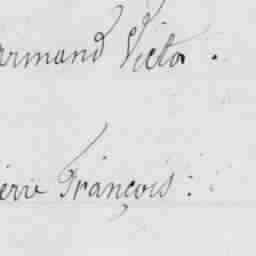 armand Victor.
ierre François: